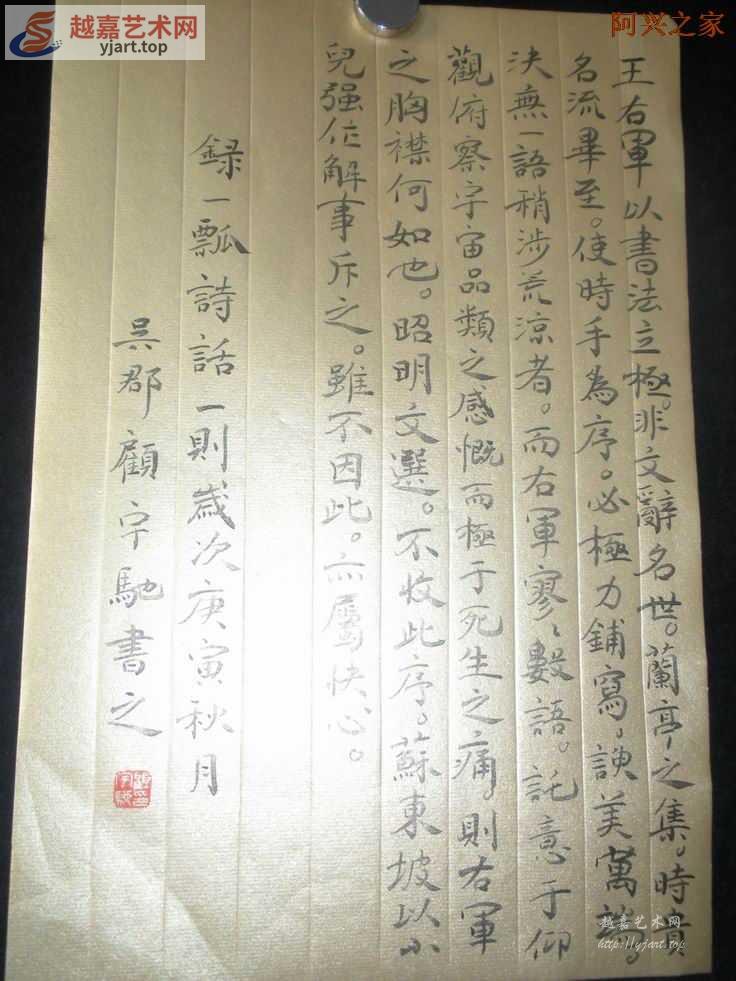 越嘉艺术网
yjart.top
阿兴之家
王右軍以書法立極。非文辭名世。蘭亭之集。時貴
名流畢至。使時手為序。必極力鋪寫。諛美萬端。
決無一語稍涉荒涼者。而右軍寥〻數語。託意于仰
觀俯察宇宙品類之感慨而極于死生之痛。則右軍
之胸襟何如也。昭明文選。不收此序。蘇東坡以小
兒强作解事斥之。雖不因此。亦屬快心。
録一瓢詩話一則歲次庚寅秋月
吴郡顧宇馳書之
越嘉艺术网
http://yjart.top